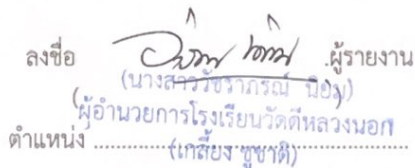 ลงชื่อ ผู้รายงาน
(นางสาววัชราภรณ์ นิยม)
ผู้อำนวยการโรงเรียนวัดดีหลวงนอก
ตำแหน่ง
(เกลี้ยง ชูชาติ)